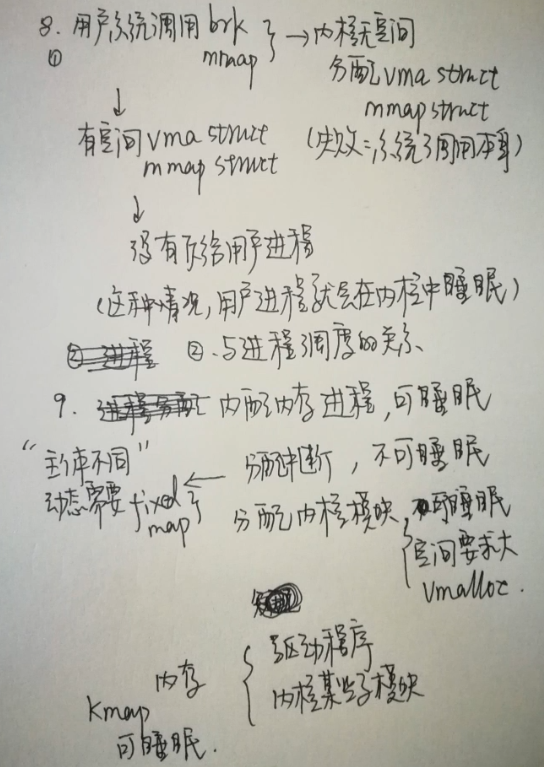 8. 用户系统调用 brk mmap } → 内核无空间
①
分配 vma struct
mmap struct
(失败:系统调用本身)
↓
有空间 vma struct
mmap struct
↓
没有页给用户进程
(这种情况,用户进程就会在内核中睡眠)
② 进程 ②. 与进程调度的关系
9. 内配内存进程,可睡眠
"主体不同" ← 分配中断,不可睡眠
动态需要 fixed map }
分配内核模块,可睡眠
空间要求大
vmalloc.
内存 { 驱动程序
内核某些子模块
kmap
可睡眠.